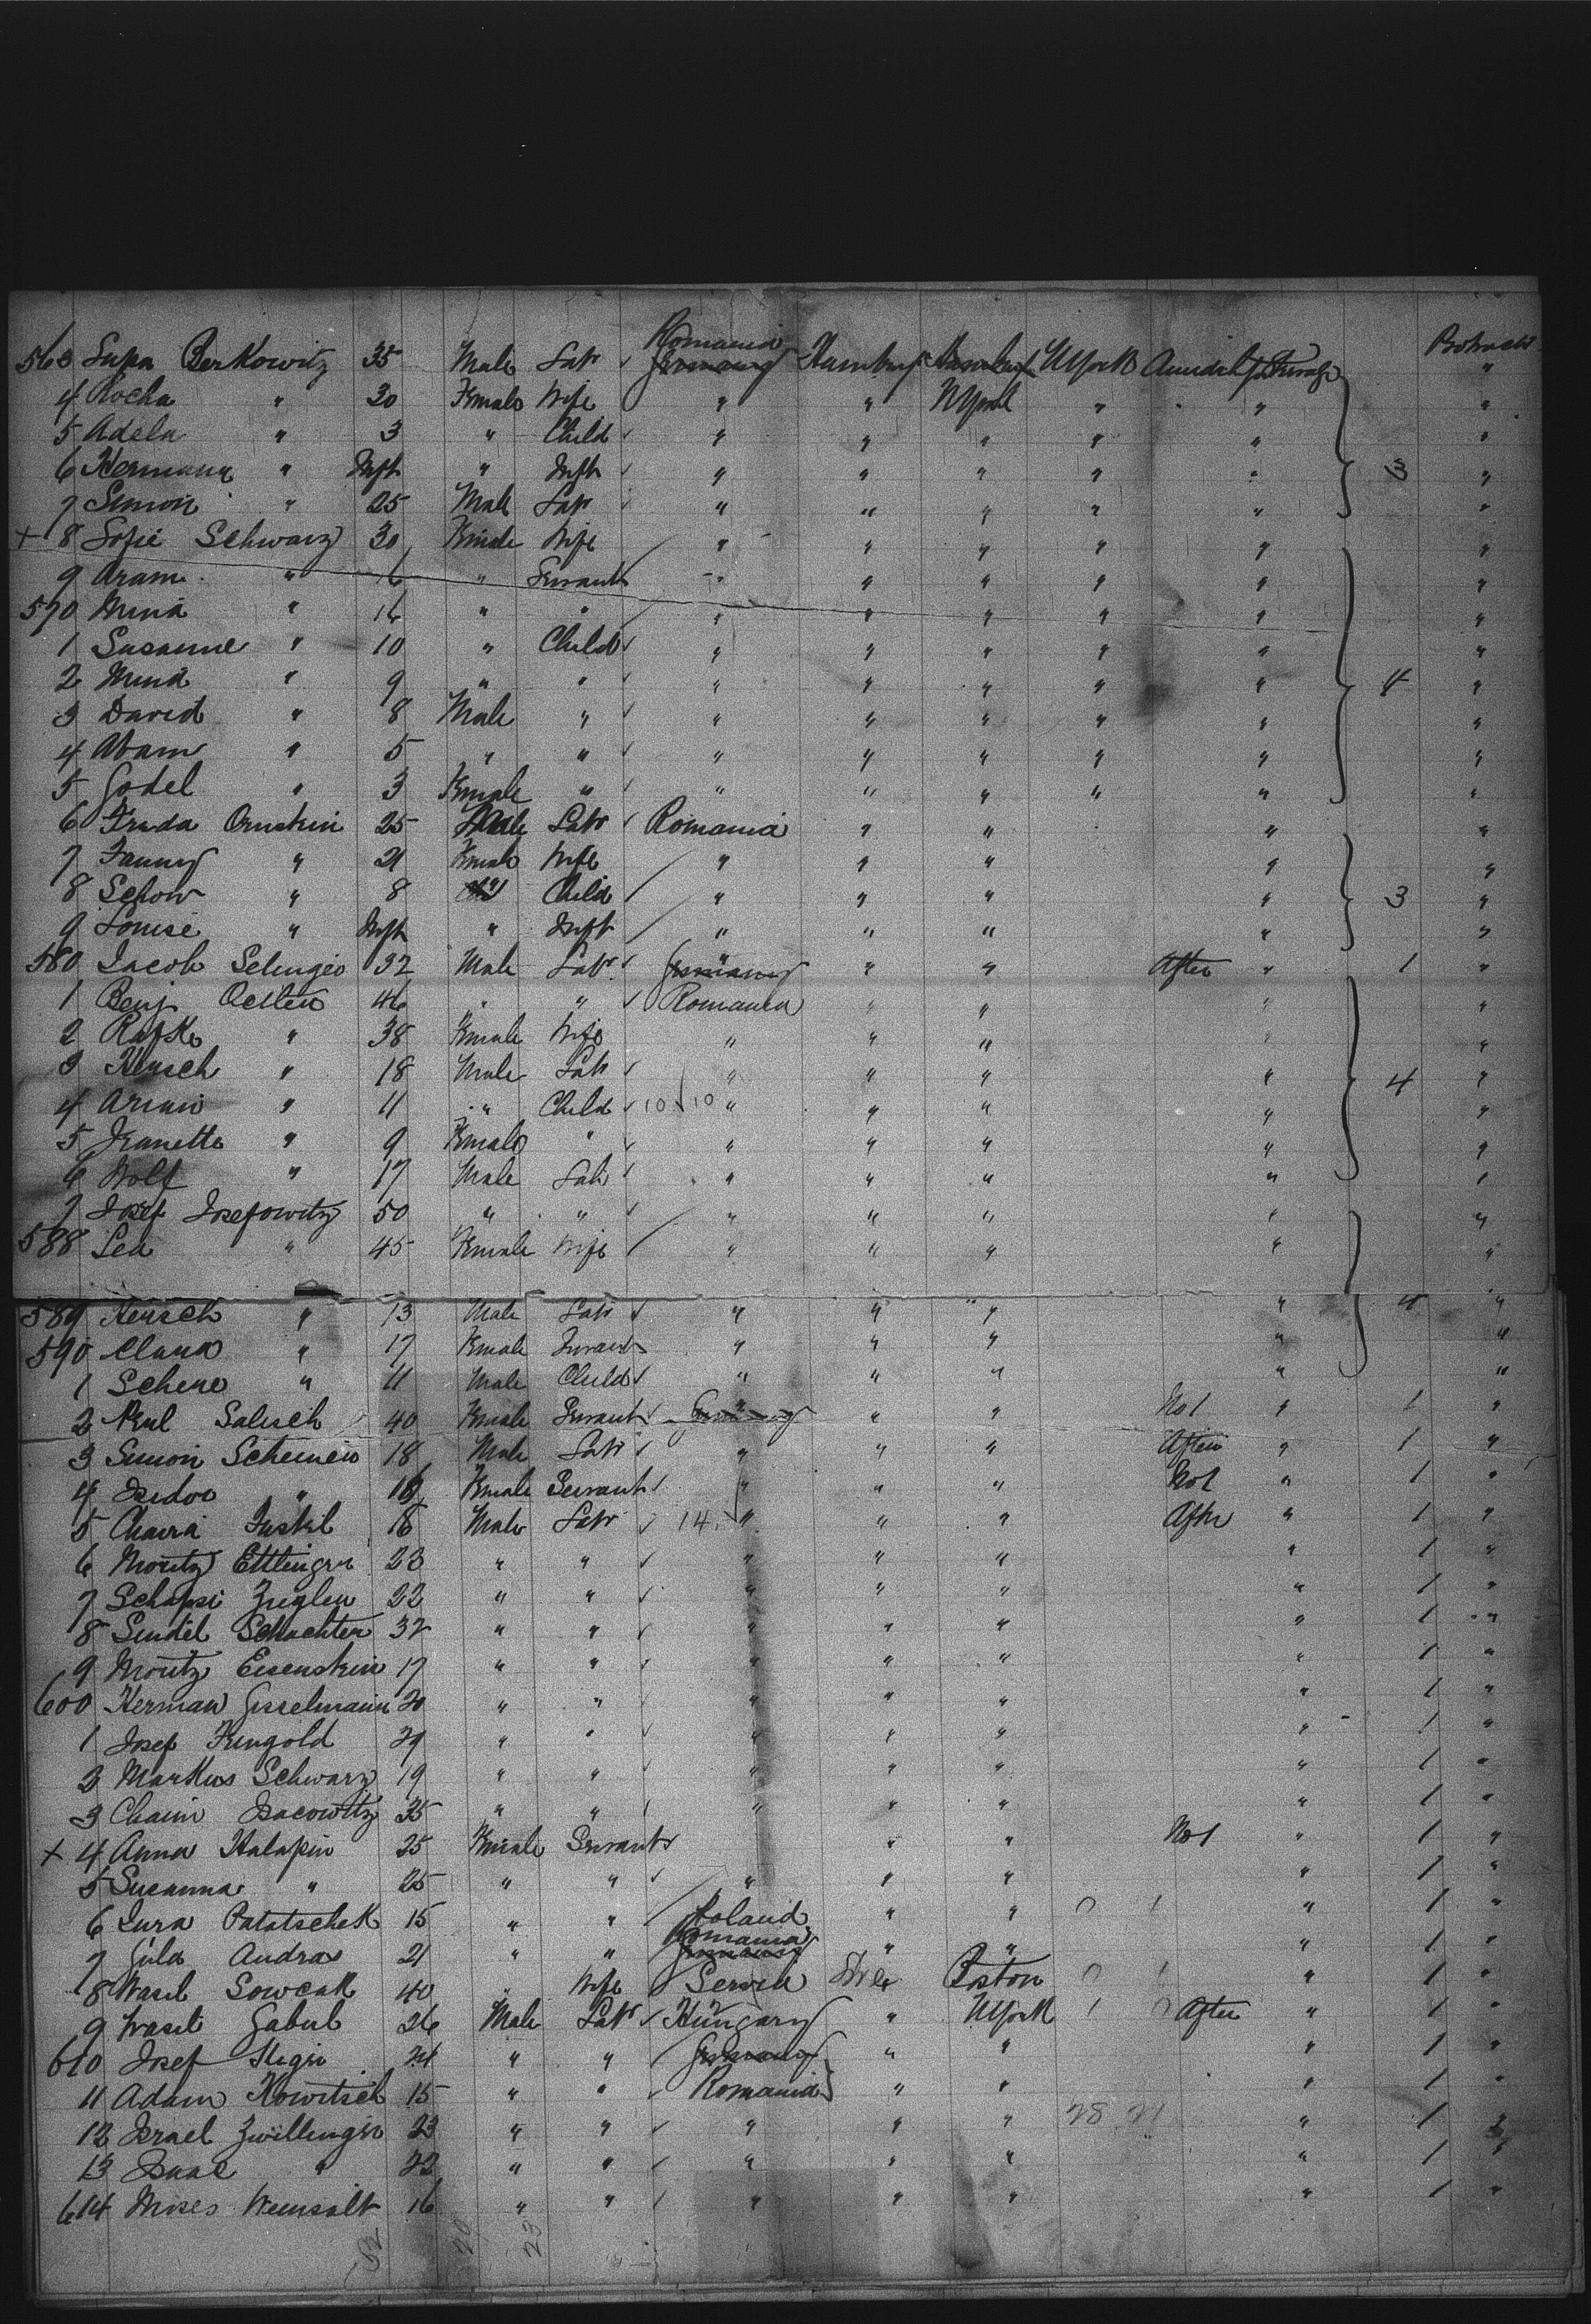 563 Supa Berkowitz 35 Male Labr ✓ Romania Germany Hamburg Hamburg NYork Amidships Steerage "
4 Rocha " 30 Female Wife " " NYork " " "
5 Adela " 3 " Child ✓ " " " " " "
6 Hermann " Inft " Inft ✓ " " " " " 3 "
7 Simon " 25 Male Labr " " " " " "
+ 8 Sofie Schwarz 30 Female Wife / " " " " " "
9 Aram " 16 " Servant " " " " " "
570 Mina " 16 " " / " " " " " "
1 Susanne " 10 " Child ✓ " " " " " "
2 Mina " 9 " " ✓ " " " " " 4 "
3 David " 8 Male " ✓ " " " " " "
4 Abam " 5 " " ✓ " " " " " "
5 Godel " 3 Female " ✓ " " " " " "
6 Frada Ornstein 25 Male Labr ✓ Romania " " " "
7 Fanny " 21 Female Wife / " " " " "
8 Schow " 8 " Child / " " " " 3 "
9 Louise " Inft " Inft / " " " " "
580 Jacob 32 Male Labr ✓ Germany " " After " 1 "
1 Benj 46 " " ✓ Romania " " " "
2 " 38 Female Wife " " " " "
3 Hersch " 18 Male Labr ✓ " " " " 4 "
4 " 11 " Child ✓ 10 10 " " " " "
5 Jeanette " 9 Female " ✓ " " " " "
6 Wolf " 17 Male Labr ✓ " " " " "
7 Josef Josefowitz 50 " " ✓ " " " " "
588 Lea " 45 Female Wife / " " " " "
589 Hersch " 13 Male Labr ✓ " " " " 4 "
590 Clara " 17 Female Servant " " " " "
1 Schene " 11 Male Child ✓ " " " " "
2 Salisch 40 Female Servant ✓ Germany " " No 1 " 1 "
3 Simon 18 Male Labr ✓ " " " After " 1 "
4 Isidor " 18 Female Servant ✓ " " " No 1 " 1 "
5 Chaira 16 Male Labr ✓ 14 " " " After " 1 "
6 Moritz Ettlinger 23 " " ✓ " " " " 1 "
7 Schapsi Ziegler 22 " " ✓ " " " " 1 "
8 Sendel Schachter 32 " " ✓ " " " " 1 "
9 Moritz Eisenstein 17 " " ✓ " " " " 1 "
600 Herman Gisselmann 20 " " ✓ " " " " 1 "
1 Josef Feingold 29 " " ✓ " " " " 1 "
2 Markus Schwarz 19 " " ✓ " " " " 1 "
3 Chaim Isacowitz 35 " " ✓ " " " " 1 "
+ 4 Anna Halapin 25 Female Servant ✓ " " No 1 " 1 "
5 Susanna " 25 " " ✓ " " " " 1 "
6 Patatschek 15 " " / Poland " " 0 1 " 1 "
7 Gula Andrae 21 " " Romania Germany " " " 1 "
8 Wasil Sowcak 40 " Wife Boston 0 " 1 "
9 Wasil Gabul 26 Male Labr ✓ Hungary " NYork 1 0 After " 1 "
610 Josef 24 " " / Germany " " " 1 "
11 Adam Kowitsch 15 " " ✓ Romania " " " 1 "
12 Israel Zwillinger 23 " " ✓ " " " 28 21 " 1 "
13 Isaac " 22 " " ✓ " " " " 1 "
614 Moses 16 " " ✓ " " " " 1 "
20 23